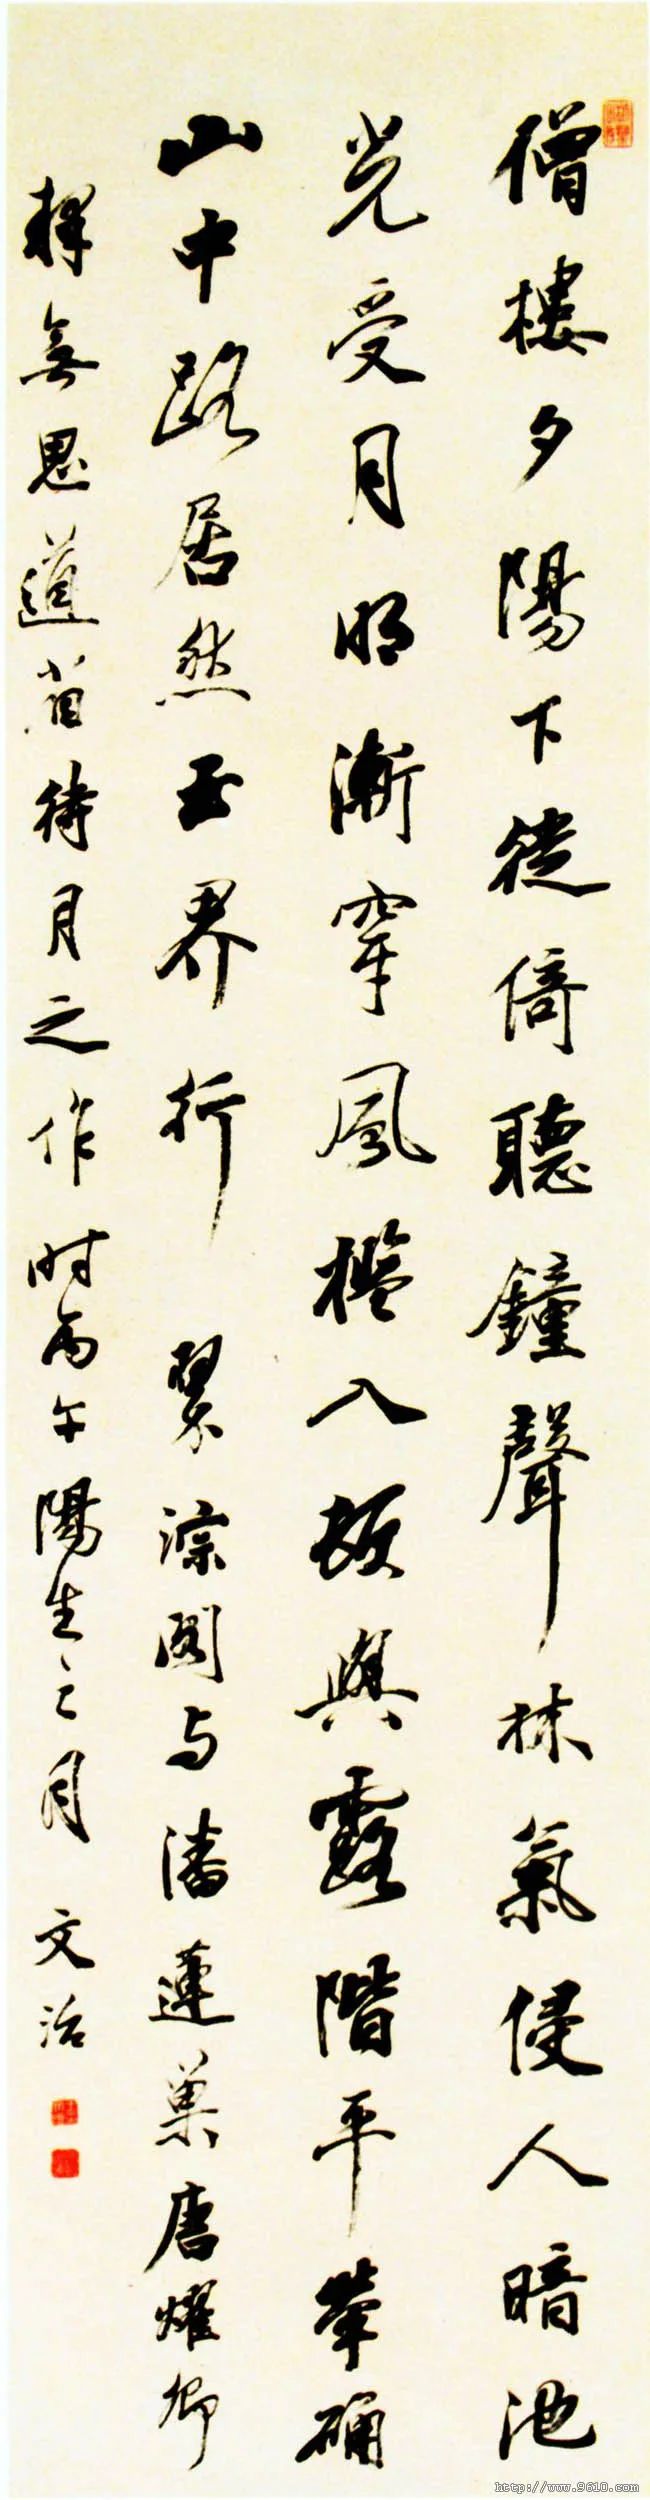 僧樓夕陽下徙倚聽鐘聲林氣侵人暗池
光受月明漸穿風檻入頓與露階平犖确
山中路居然玉界行 翠淙閣与潘蓮巢唐燿卿
釋無思道省待月之作 时丙午陽生之月 文治
http://www.9610.com